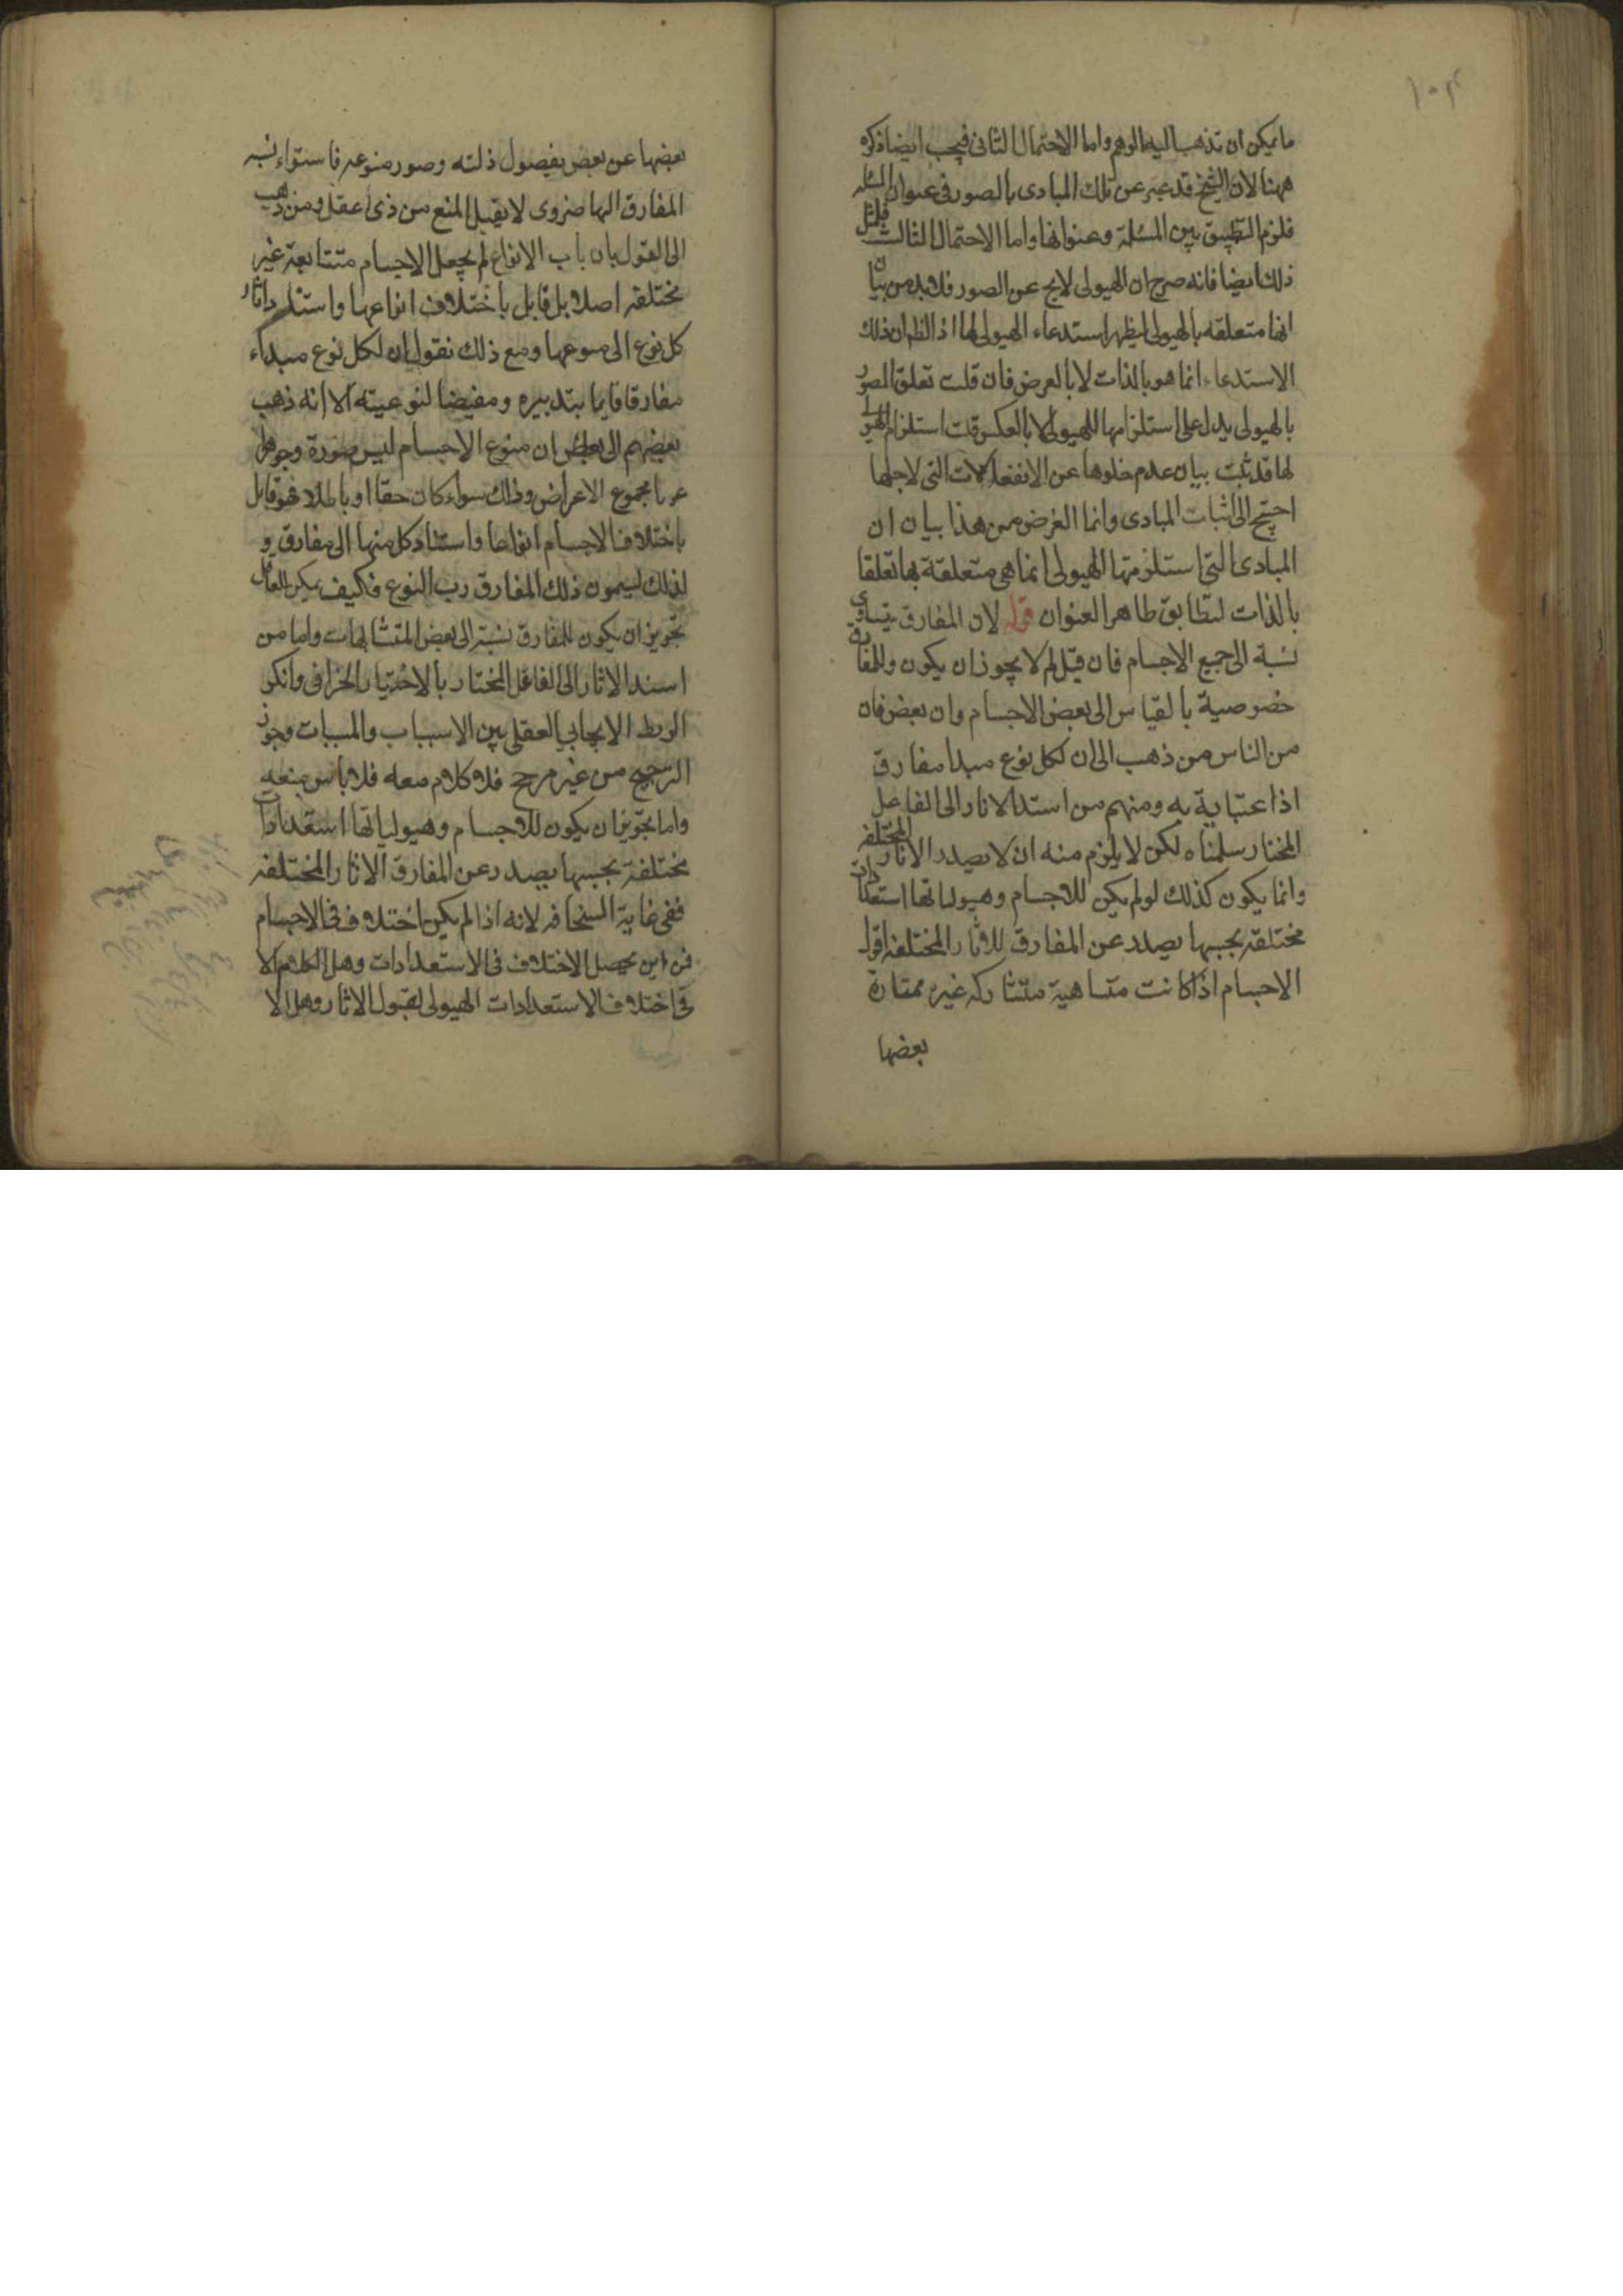 ١٠٣
ما يمكن ان تذهب اليه الوهم واما الاحتمال الثانى فيجب ايضا ذكره
ههنا لان الشيخ قد عبر عن تلك المبادى بالصور فى عنوان المسئله
فلزم التطبيق بين المسئلة وعنوانها واما الاحتمال الثالث فلمثل
ذلك ايضا فانه صرح ان الهيولى لايخ عن الصور فلابد من بيان
انها متعلقه بالهيولى ليظهر استدعاء الهيولى لها اذ الظ ان ذلك
الاستدعاء انما هو بالذات لا بالعرض فان قلت تعلق الصور
بالهيولى يدل على استلزامها للهيولى لا بالعكس قلت استلزام الهيولى
لها قد ثبت بيان عدم خلوها عن الانفعالات التى لاجلها
احتج الى اثبات المبادى وانما الغرض من هذا بيان ان
المبادى التى استلزمتها الهيولى انما هى متعلقة بها تعلقا
بالذات لتطابق ظاهر العنوان قوله لان المفارق يتساوى
نسبة الى جميع الاجسام فان قيل لم لا يجوز ان يكون وللمفارق
خصوصية بالقياس الى بعض الاجسام وان بعض فان
من الناس من ذهب الى ان لكل نوع مبدا مفارق
اذا عتباية به ومنهم من استد الاثار الى الفاعل
المختار سلمناه لكن لا يلزم منه ان لا يصدر الاثار المختلفه
وانما يكون كذلك لو لم يكن للاجسام وهيولياتها استعدادات
مختلفه بحسبها يصدر عن المفارق للاثار المختلفه اقول
الاجسام اذا كانت متساهية متشاركه غير ممتازة
بعضها
بعضها عن بعض بفصول ذلته وصور منوعه فاستواء نسبه
المفارق الها ضروى لا يقبل المنع من ذى عقل ومن ذهب
الى القول بان باب الانواع لم يجعل الاجسام متتابعة غير
مختلفه اصلا بل قابل باختلاف انواعها واستناد اثار
كل نوع الى منوعها ومع ذلك نقول ان لكل نوع مبداء
مفارقا قايما بتدبيره ومفيضا لنوعيته الا انه ذهب
بعضهم الى ان منوع الاجسام ليس صورة وجوهرا
عر با مجموع الاعراض وذلك سواء كان حقا او باطلا فهو قابل
باختلاف الاجسام انواعا واستناد كل منها الى مفارق و
لذلك ليسمون ذلك المفارق رب النوع فكيف يمكن للعاقل
تجويز ان يكون للمفارق نسبة الى بعض المتشابهات واما من
اسند الاثار الى الفاعل المختار بالاختيار الخزافى وانكر
الربط الايجابي العقلى بين الاسباب والمسببات وجوز
الترجيح من غير مرجح فلا كلام معه فلا باس بمنعه
واما تجويز ان يكون للاجسام وهيولياتها استعدادات
مختلفة بحسبها يصدر عن المفارق الاثار المختلفه
ففى غاية السخافه لانه اذا لم يكن اختلاف فى الاجسام
فمن اين يحصل الاختلاف فى الاستعدادات وهل الكلام الا
فى اختلاف الاستعدادات الهيولى لقبول الاثار وهل الا